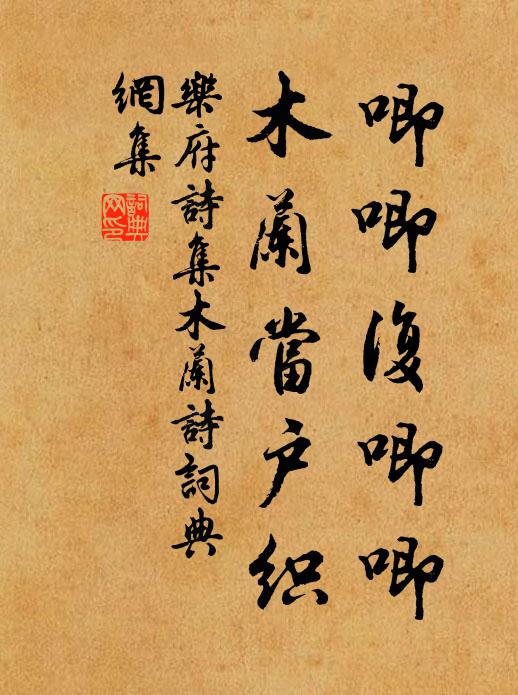 唧唧復唧唧
木蘭當户織
樂府詩集木蘭詩詞典
網集
詞典
网印